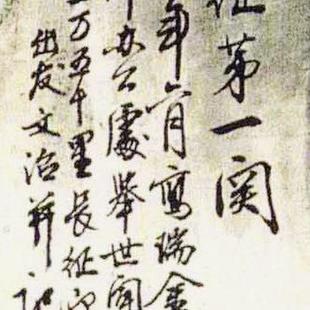 征第一关
年六月写瑞金
办公处举世闻
二万五千里长征即
文治并记